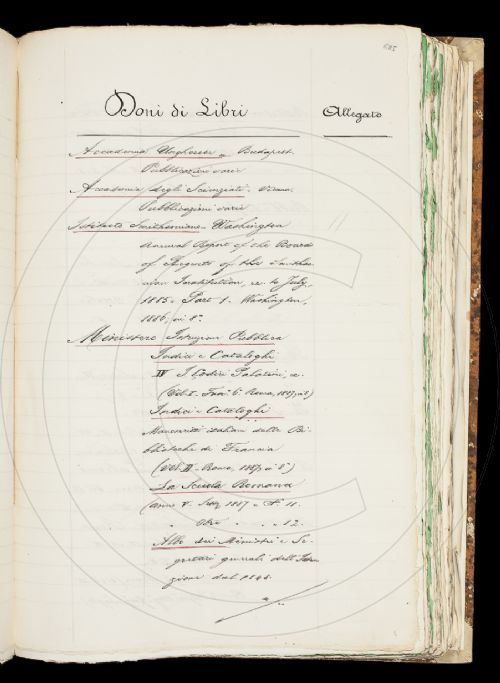 Doni di Libri
Allegato
Accademia Ungherese, Budapest.
Pubblicazioni varie
Accademia degli Scienziati. Vienna
Pubblicazioni varie
Istituto Smithsoniano Washington
Annual Report of the Board
of Regents of the Smithso-
nian Institution, ec. to July,
1885. Part 1. Washington,
1886, in 8°.
Ministero Istruzione Pubblica
Indici e Cataloghi
IV I Codici Palatini, ec.
(Vol. I. Fasc. 6. Roma, 1887, in 8°)
Indici e Cataloghi
Manoscritti italiani delle Bi-
blioteche di Francia
(Vol. II. Roma, 1887, in 8°)
La Scuola Romana
(Anno V. 1887. N. 11.
" " " 12.
Albo dei Ministri e Se-
gretari generali dell'
dal 1848.